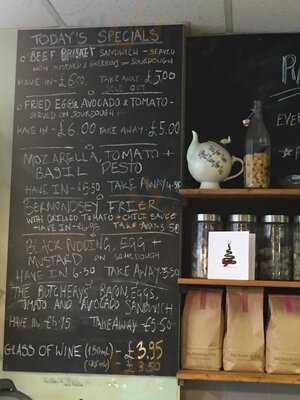 TODAY'S SPECIALS
BEEF BRISKET SANDWICH - SERVED
WITH MUSTARD & GHERKINS ON SOURDOUGH
HAVE IN - £6.00 TAKE AWAY £5.00
SOLD OUT
FRIED EGG & AVOCADO & TOMATO -
SERVED ON SOURDOUGH -
HAVE IN - £6.00 TAKE AWAY - £5.00
MOZARELLA, TOMATO +
BASIL PESTO
HAVE IN - £5.50 TAKE AWAY
BERMONDSEY FRIER
WITH GRILLED TOMATO + CHILLI SAUCE
HAVE IN - £6.95 TAKE AWAY
BLACK PUDDING, EGG +
MUSTARD ON SOURDOUGH
HAVE IN 6.50 TAKE AWAY
THE BUTCHERYS' BACON, EGGS,
TOMATO AND AVOCADO SANDWICH
HAVE IN TAKEAWAY £5.50
GLASS OF WINE - £3.95
- £3.50